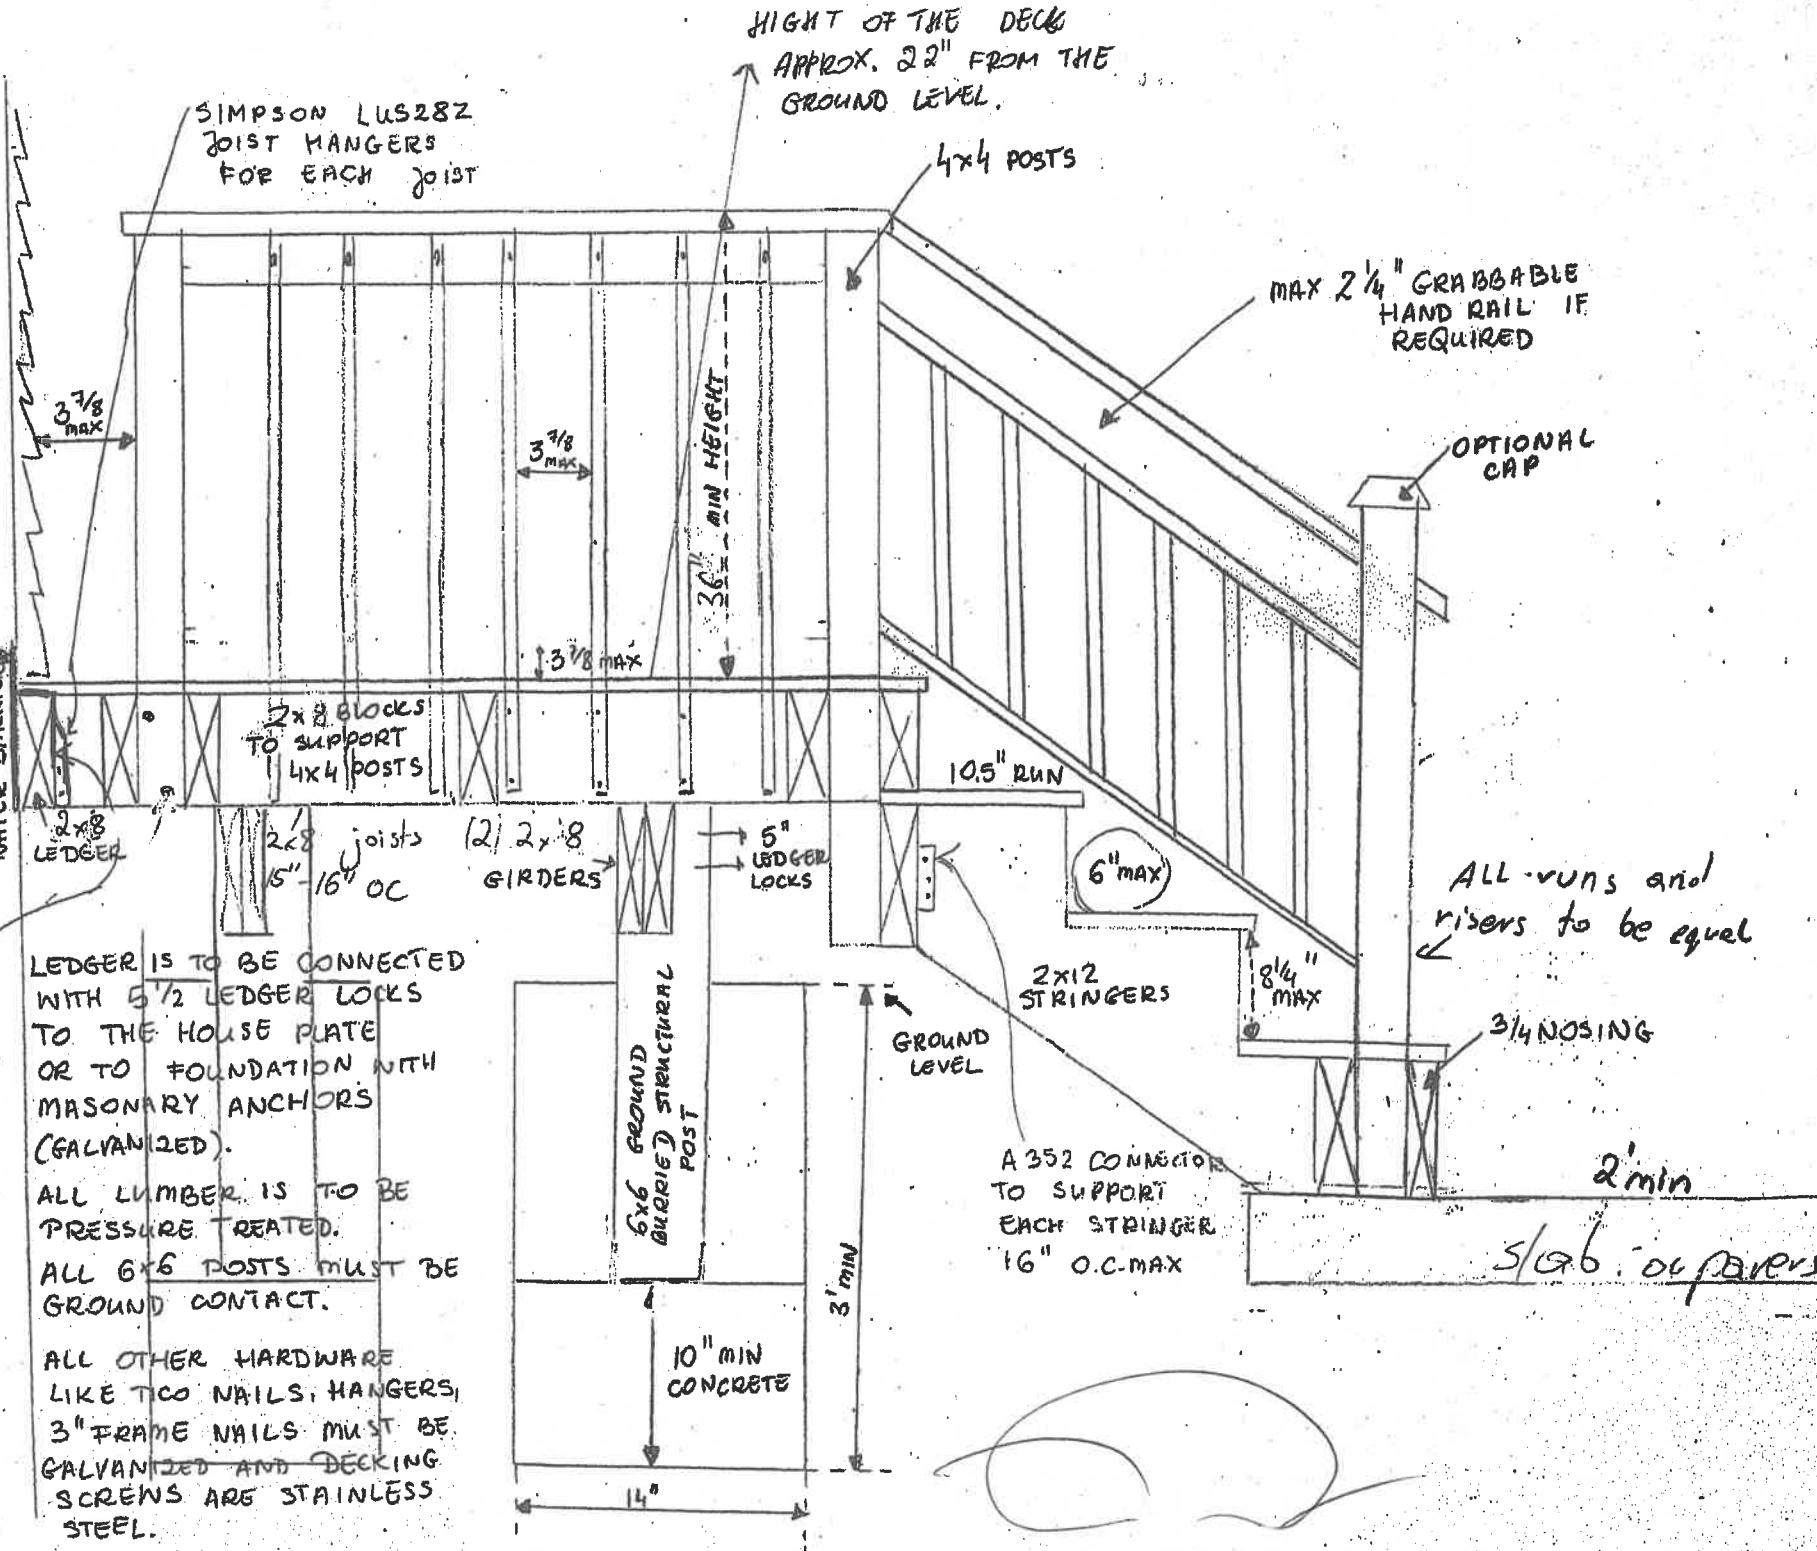 HIGHT OF THE DECK
APPROX. 22" FROM THE
GROUND LEVEL.
SIMPSON LUS28Z
JOIST HANGERS
FOR EACH JOIST
4x4 POSTS
MAX 2 1/4" GRABBABLE
HAND RAIL IF
REQUIRED
3 7/8
MAX
3 7/8
MAX
36" MIN HEIGHT
OPTIONAL
CAP
3 7/8 MAX
2x8 BLOCKS
TO SUPPORT
4x4 POSTS
10.5" RUN
2x8
LEDGER
2x8 joists
15"-16" OC
(2) 2x8
GIRDERS
5"
LEDGER
LOCKS
6" MAX
ALL runs and
risers to be equal
LEDGER IS TO BE CONNECTED
WITH 5 1/2 LEDGER LOCKS
TO THE HOUSE PLATE
OR TO FOUNDATION WITH
MASONARY ANCHORS
(GALVANIZED).
ALL LUMBER IS TO BE
PRESSURE TREATED.
ALL 6x6 POSTS MUST BE
GROUND CONTACT.
ALL OTHER HARDWARE
LIKE TICO NAILS, HANGERS,
3" FRAME NAILS MUST BE
GALVANIZED AND DECKING
SCREWS ARE STAINLESS
STEEL.
6x6 GROUND
BURRIED STRUCTURAL
POST
GROUND
LEVEL
2x12
STRINGERS
8 1/4"
MAX
3/4 NOSING
A352 CONNECTOR
TO SUPPORT
EACH STRINGER
16" O.C. MAX
2' min
slab or pavers
3' MIN
10" MIN
CONCRETE
14"